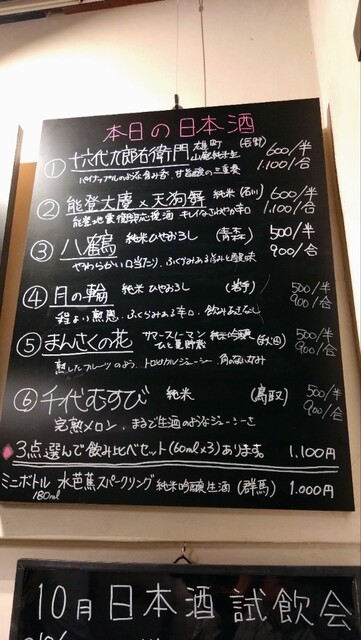 本日の日本酒
① 十六代九郎右衛門 雄町 山廃純米生 (長野) 600/半
1,100/合
パイナップルのような含み香、甘旨酸の三重奏
② 能登大慶×天狗舞 純米 (石川) 600/半
能登地震復興応援酒 キレなめらか辛口 1,100/合
③ 八鶴 純米ひやおろし (青森) 500/半
やわらかい口当たり、ふくらみある旨みと酸味 900/合
④ 月の輪 純米ひやおろし (岩手) 500/半
程よい熟感、ふくらみある辛口、飲みあきなし 900/合
⑤ まんさくの花 サマースノーマン 純米吟醸 (秋田) 500/半
900/合
熟したフルーツのよう、トロピカルジューシー、角のない
⑥ 千代むすび 純米 (鳥取) 500/半
900/合
完熟メロン、まるで生酒のようなジューシーさ
3点選んで飲み比べセット(60ml×3)あります。 1,100円
ミニボトル 水芭蕉スパークリング 純米吟醸生酒 (群馬) 1,000円
180ml
10月日本酒試飲会